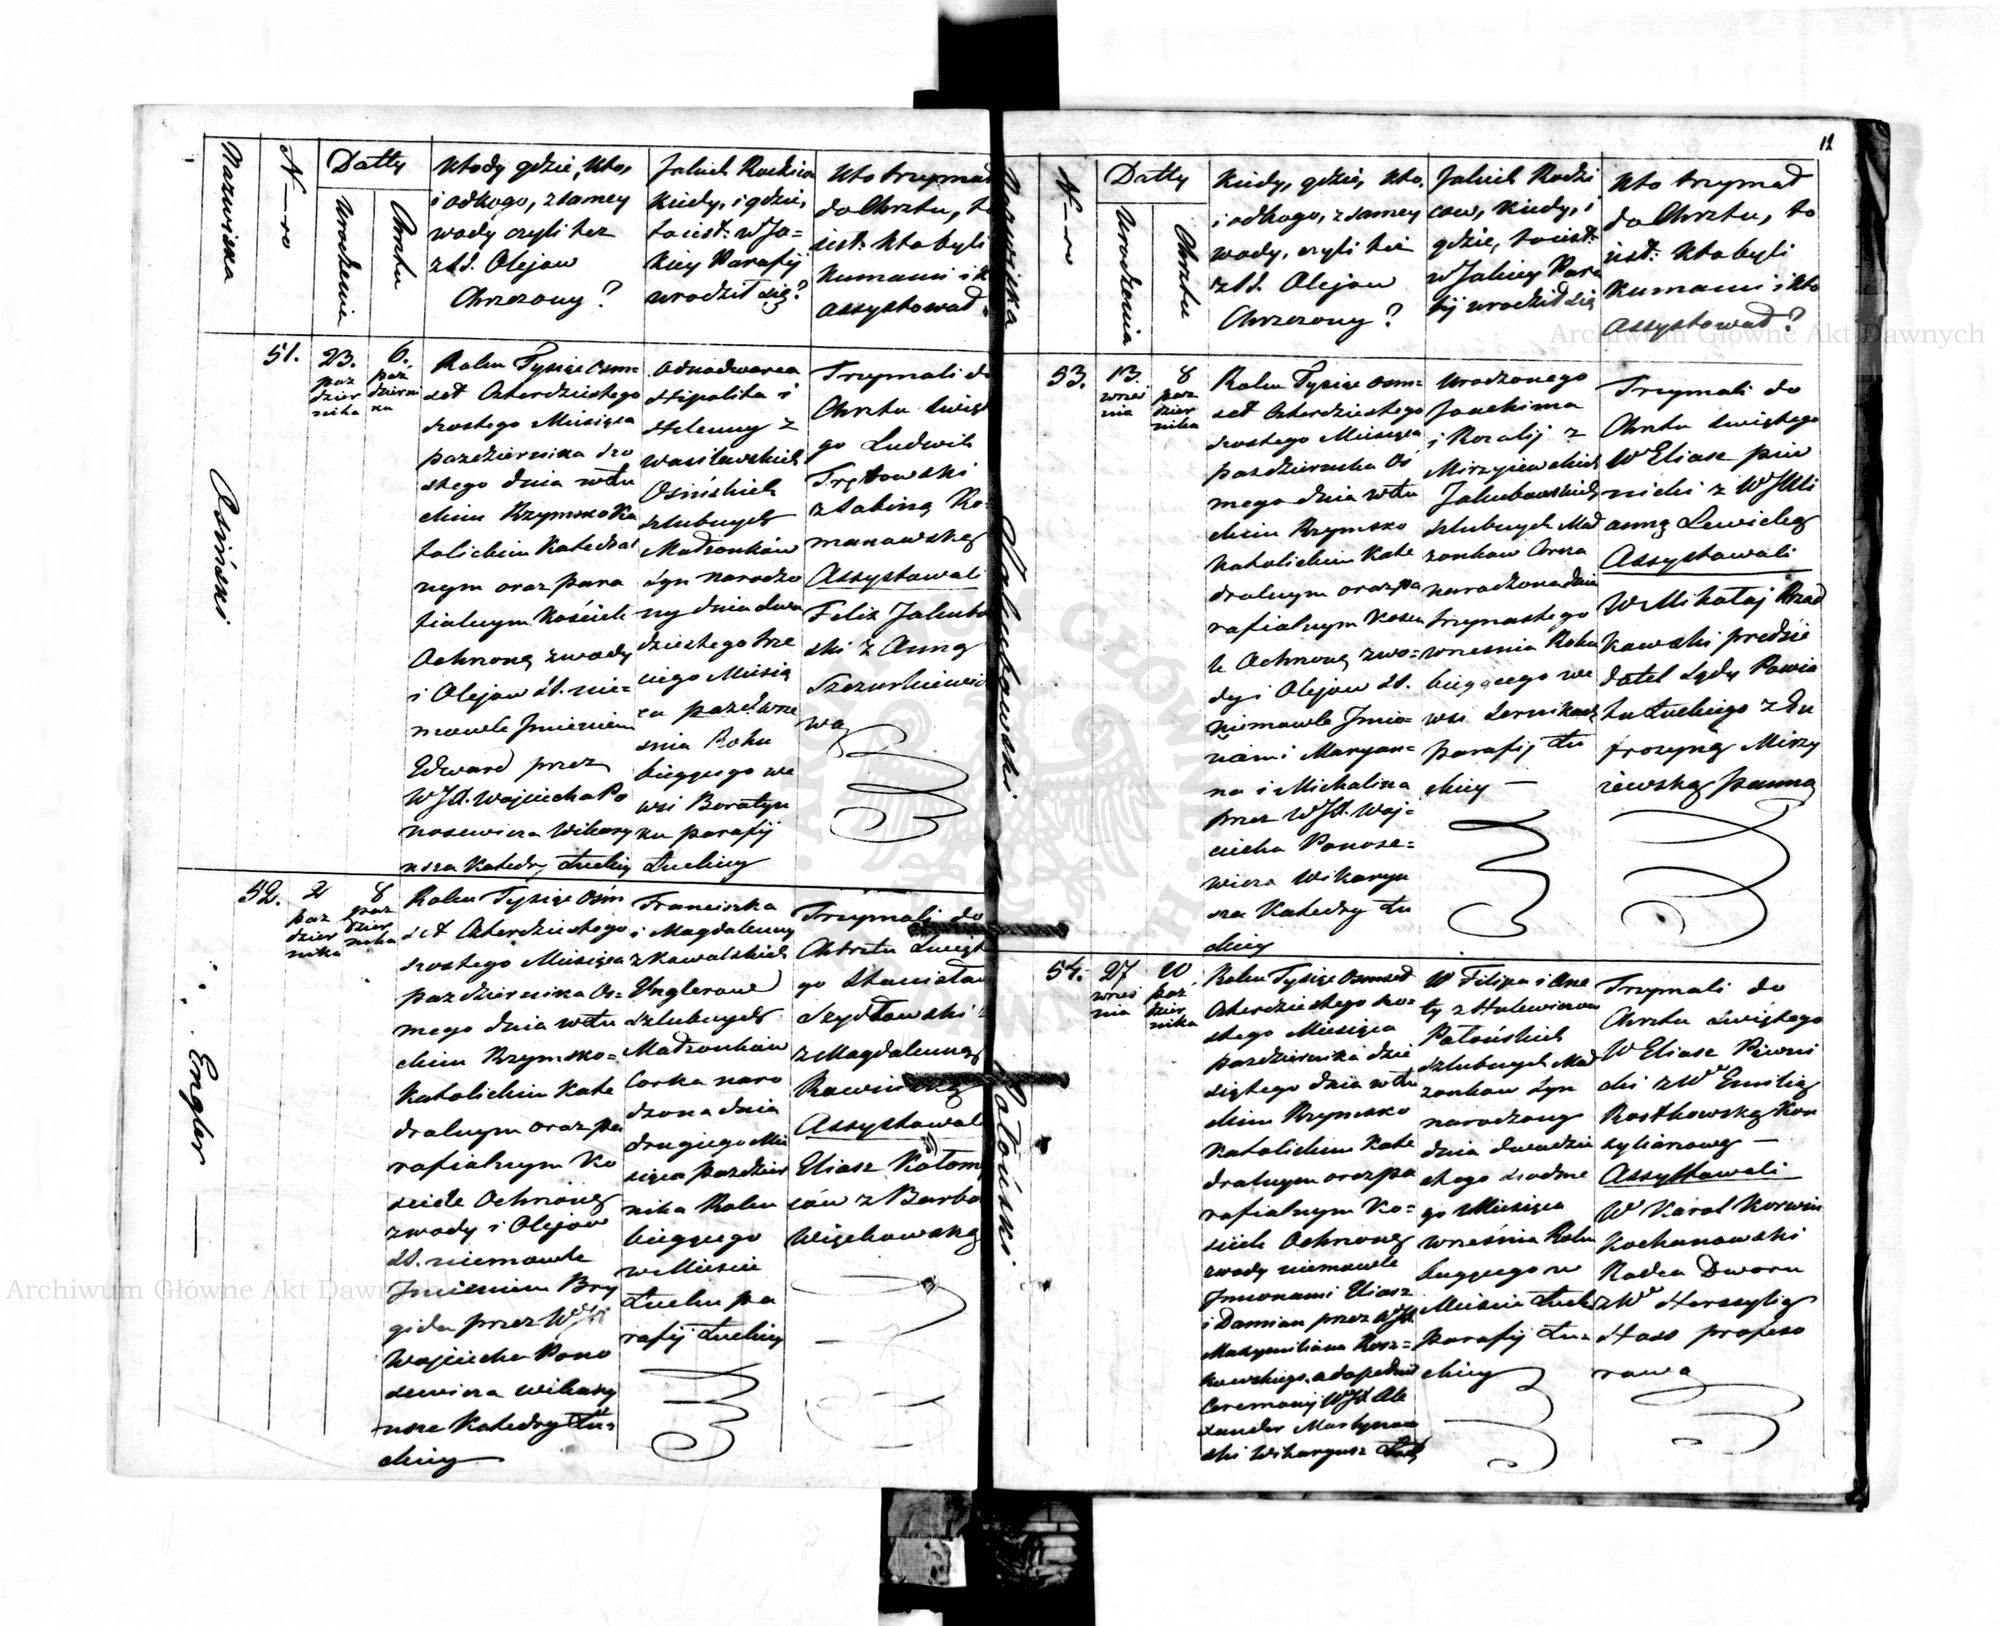 Nazwiska
N-ro
Datty
Urodzenia
Chrztu
Kiedy gdzie, kto,
i odkogo, z samey
wody czyli też
z SS. Olejow
Chrzczony?
Jakich Rodziców
Kiedy, i gdzie,
to iest: w Ja=
kiey Parafij
urodził się?
Kto trzymał
do Chrztu, to
iest: kto byli
Kumami i k
assystował
Osiński
51.
23.
paz
dzier
nika
6.
paz
dzierni
ka
Roku Tysiąc Osm=
set Czterdziestego
szostego Miesiąca
pazdziernika szo
stego dnia w Łu
ckim Rzymsko Ka
tolickim Katedral
nym oraz para
fialnym Kościele
Ochrzcony z wody
i Olejow SS. nie=
mowle Jmieniem
Edward przez
WJX. Wojciecha Po
nosewicza Wikary
usza Katedry Łuckiey
Odnodworca
Hipolita i
Heleny z
Wasilewskich
Osińskich
szlubnych
Małżonków
syn narodzo
ny dnia dwa
dziestego trze
ciego Miesią
ca paz. wrze
snia Roku
bieżącego we
wsi Boratyn
ku parafij
Łuckiey
Trzymali do
Chrztu święt
go Ludwik
Trętowski
z Sabiną Ro=
manowską
Assystowali
Felix Jakubo
ski z Anną
Szczurkiewic
wą
Engler
52.
2
paz
dzier
nika
8
paz
dzier
nika
Roku Tysiąc Osm
set Czterdziestego
szostego Miesiąca
pazdziernika Os=
mego dnia w Łu
ckim Rzymsko=
Katolickim Kate
dralnym oraz pa
rafialnym Ko
sciele Ochrzcong
z wody i Olejow
SS. niemowle
Jmieniem Bry
gida przez WJX
Wojciecha Pono
sewicza Wikary
usza Katedry Łu=
ckiey
Franciszka
i Magdaleny
z Kowalskich
Englerow
szlubnych
Małżonków
Corka naro
dzona dnia
drugiego Mie
siąca pazdzier
nika Roku
bieżącego
w Miescie
Łucku pa
rafij Łuckiey
Trzymali do
Chrztu święt
go Stanisław
Szydłowski
z Magdaleną
Rawinską
Assystowal
Eliasz Kołom
ców z Barba
Więckowską
11
Nazwiska
N-ro
Datty
Urodzenia
Chrztu
Kiedy, gdzie, kto,
i odkogo, z samey
wody, czyli też
z SS. Olejow
Chrzczony?
Jakich Rodzi
cow, Kiedy, i
gdzie, to iest:
w Jakiey Para
fij urodził się
Kto trzymał
do Chrztu, to
iest: kto byli
Kumami i kto
Assystował?
Jakubowski
53.
13.
wrześ
nia
8
paz
dzier
nika
Roku Tysiąc Osm=
set Czterdziestego
szostego Miesiąca
pazdziernika Os
mego dnia w Łu
ckim Rzymsko
Katolickim Kate
dralnym oraz pa
rafialnym Koscie
le Ochrzcong z wo=
dy i Olejow SS.
niemowle Jmio=
nami Maryan=
na i Michalina
przez WJX. Woj=
ciecha Ponose=
wicza Wikaryu
sza Katedry Łu
ckiey
Urodzonego
Joachima
i Rozalij z
Mirzyiewskich
Jakubowskich
szlubnych Mał
żonkow Corka
narodzona dnia
trzynastego
września Roku
bieżącego we
wsi Sernikach
parafij Łu
ckiey —
Trzymali do
Chrztu świętego
W Eliasz piw
nicki z WJUli
anną Lewicką
Assystowali
W Mikołaj Rzad
kowski predsie
datel Sądu Powia
tu Łuckiego z Eu
frozyną Mirzy
iewską panną
Połoński
54.
27
wrześ
nia
10
paz
dzier
nika
Roku Tysiąc Osmset
Czterdziestego szo=
stego Miesiąca
pazdziernika dzie
siątego dnia w Łu
ckim Rzymsko
Katolickim Kate
dralnym oraz pa
rafialnym Ko=
sciele Ochrzcong
z wody niemowle
Jmionami Eliasz
i Damian przez WJX.
Maxymiliana Rosz=
kowskiego, a dopełnił
Ceremonij WJX Ale
xander Martynow
ski Wikaryusz Łuck
W Filipa i Ane
ty z Hulewiczow
Połońskich
szlubnych Mał
żonkow syn
narodzony
dnia dwadzie
stego siodme
go Miesiąca
września Roku
bieżącego w
Miescie Łucku
parafij Łu=
ckiey
Trzymali do
Chrztu świętego
W Eliasz Piwni
cki z Wą Emilią
Rostkowską Kon
syliarową —
Assystowali
W Karol Korwin
Kochanowski
Radca Dworu
z Wą Hersylią
Hass profeso
rową
Archiwum Główne Akt Dawnych
Archiwum Główne Akt Dawnych